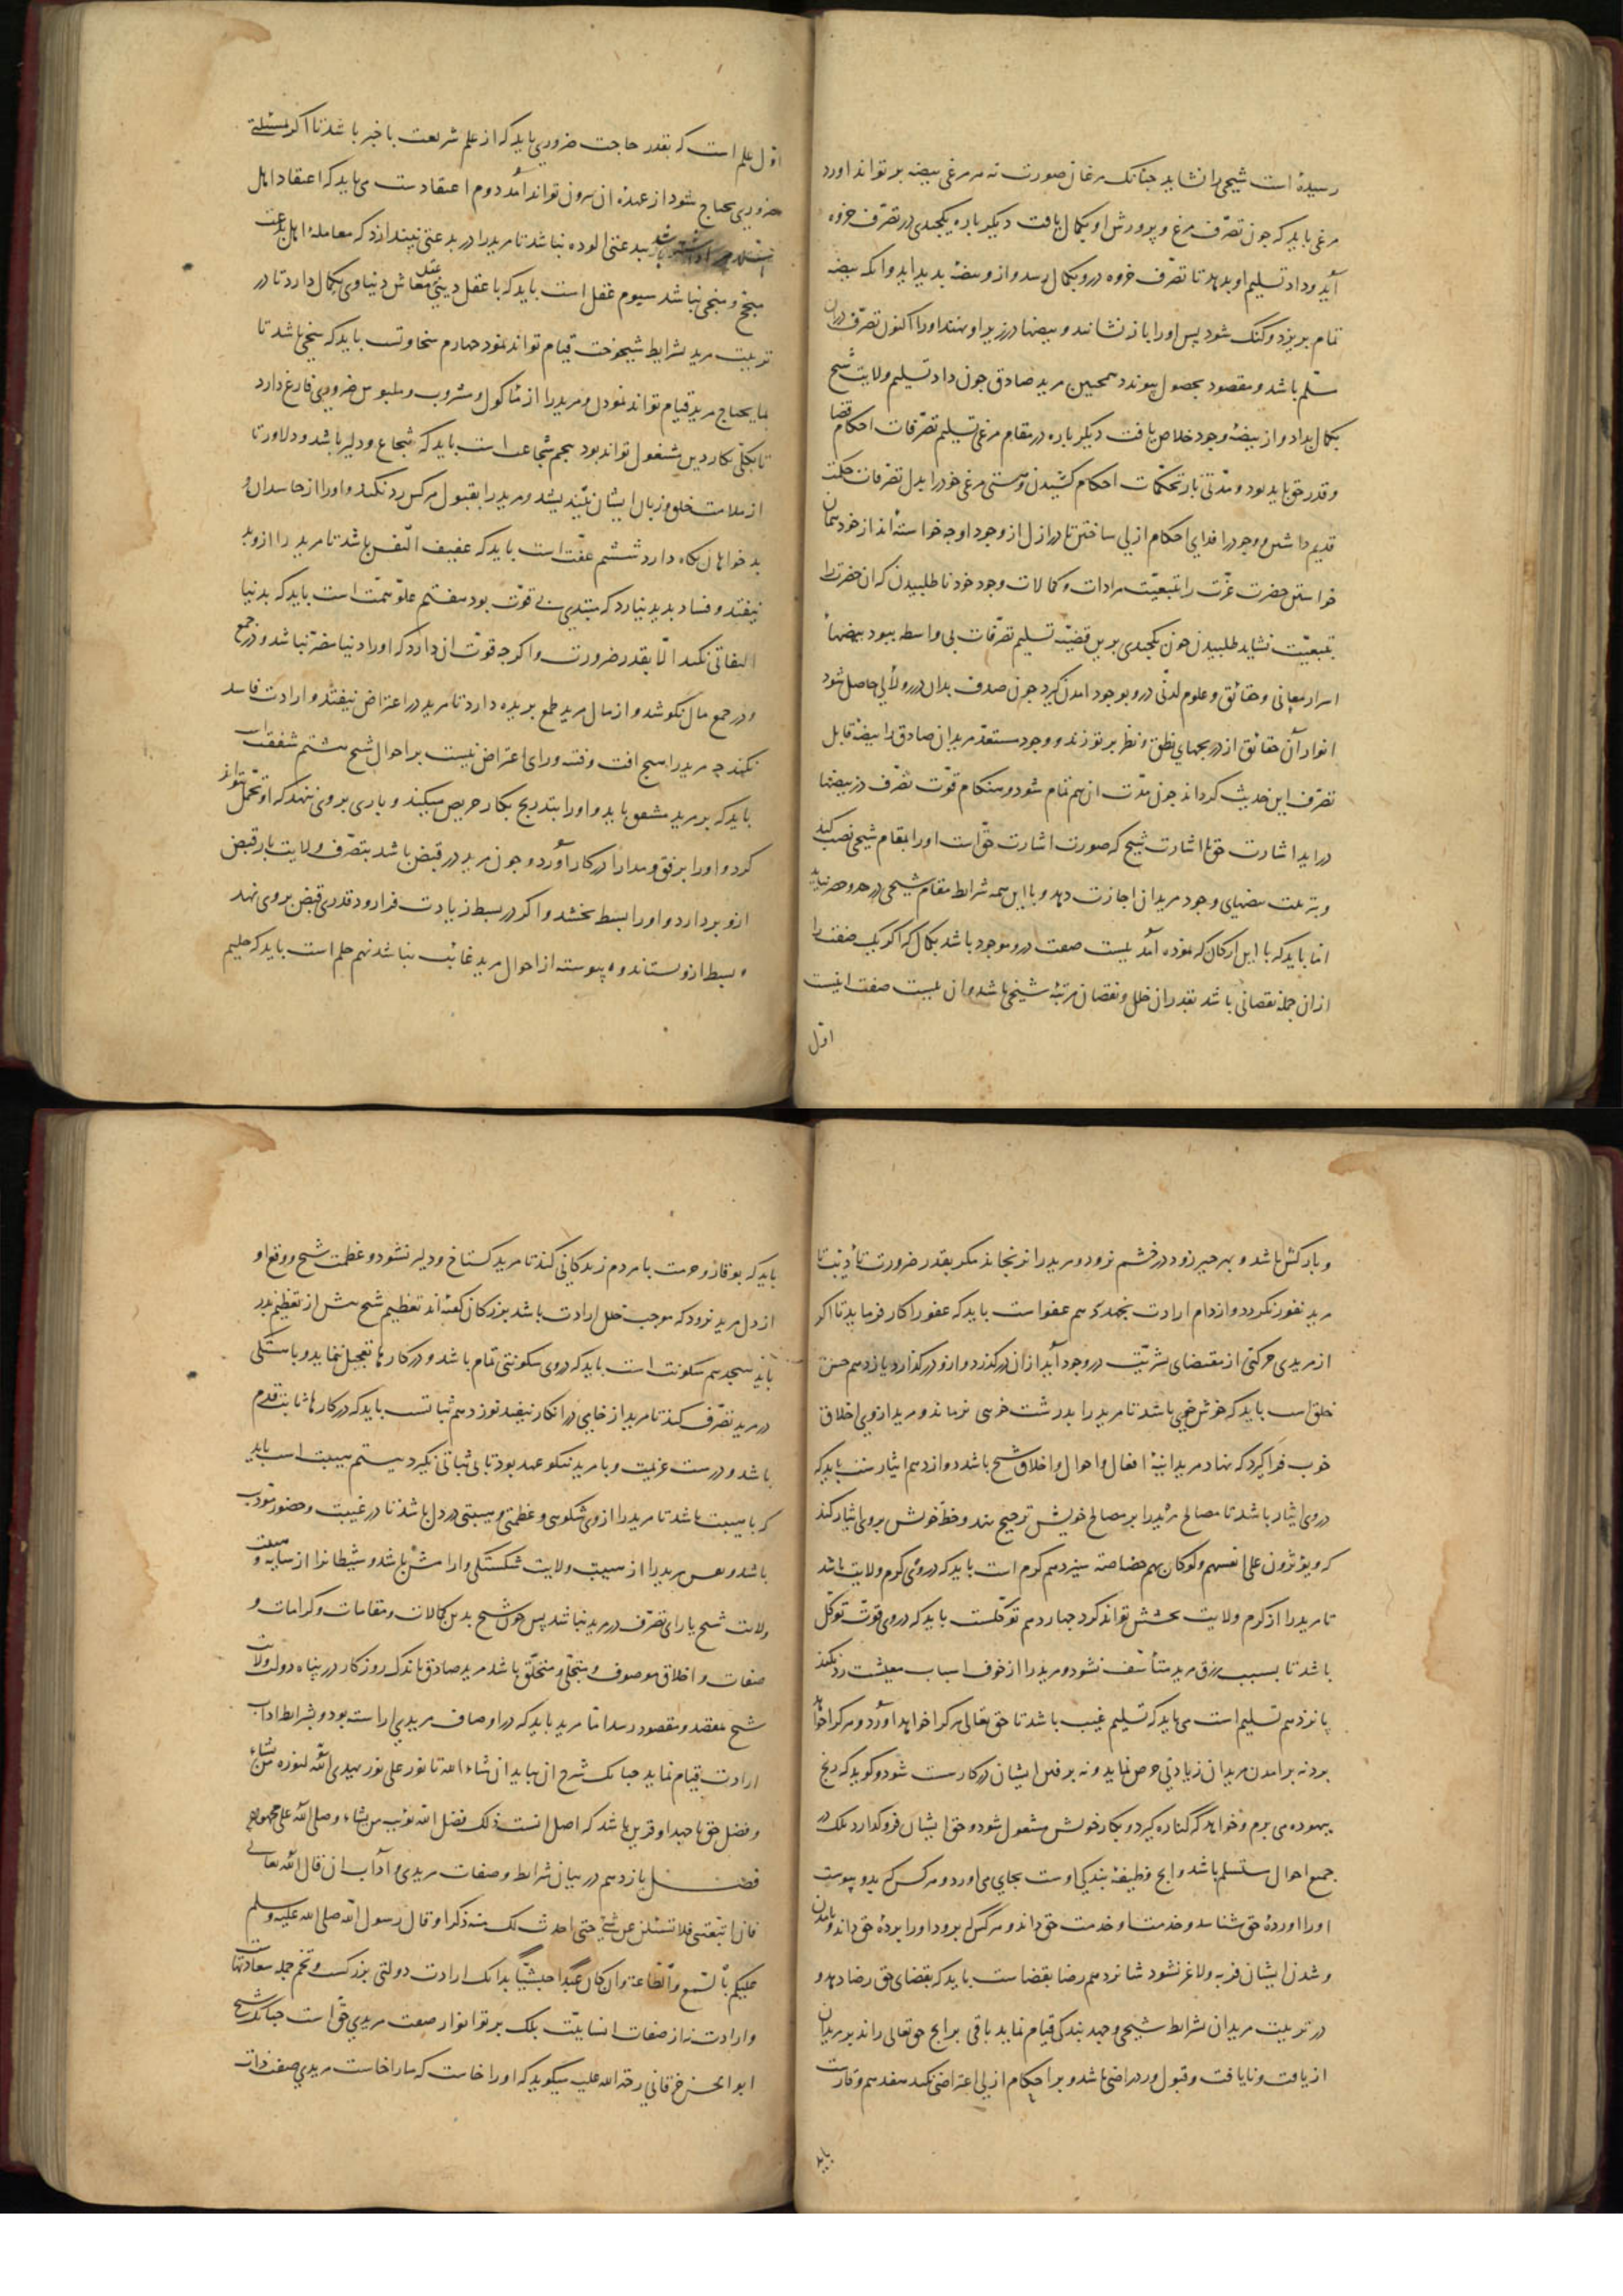 رسیده است شیخی را نشاید چنانک مرغان صورت نه هر مرغی بیضه بر تواند آورد
مرغی باید که چون تصرف مرغ و پرورش او بکمال یافت دیگر باره یکچندی در تصرف خروه
آید و داد تسلیم او بدهد تا تصرف خروه درو بکمال رسد و ازو بیضه پدید اید وانکه بیضه
تمام بریزد و کنک شود پس اورا باز نشانند و بیضها در زیر او نهند اورا اکنون تصرف دران
مسلم باشد و مقصود بحصول پیوندد همچنین مرید صادق چون داد تسلیم ولایت شیخ
بکمال بداد و از بیضه وجود خلاص یافت دیگر باره در مقام مرغی تسلیم تصرفات احکام قضا
و قدر حق باید بود و مدتی بار تحکمات احکام کشیدن و هستی مرغی خودرا بدل تصرفات حکمت
قدیم داشتن و وجودرا فدای احکام ازلی ساختن تا در ازل از وجود او چه خواسته اند از خود همان
خواستن حضرت عزت را بتبعیت مرادات و کمالات وجود خود نا طلبیدن که ان حضرت را
بتبعیت نشاید طلبیدن چون یکچندی برین قضیه تسلیم تصرفات بی واسطه ببود بیضهاء
اسرار معانی و حقائق و علوم لدنی درو بوجود امدن گیرد چون صدف بدان درر و لآلی حاصل شود
انوار آن حقائق از دریچهای نطق و نظر برتو زند و وجود مستعد مریدان صادق را بیضه قابل
تصرف این حدیث گرداند چون مدت ان هم تمام شود و هنگام قوت تصرف در بیضها
دراید اشارت حق با اشارت شیخ که صورت اشارت حق است اورا بمقام شیخی نصب کند
و بتربیت بیضهای وجود مریدان اجازت دهد و با این همه شرائط مقام شیخی در حد و حصر نیاید
اما باید که با این ارکان که نموده آمد بیست صفت درو موجود باشد بکمال که اگر یک صفت را
ازان جمله نقصانی باشد بقدر ان خلل و نقصان مرتبه شیخی باشد و ان بیست صفت اینست
اول
اول علم است که بقدر حاجت ضروری باید که از علم شریعت باخبر باشد تا اگر مسئلتی
ضروری محتاج شود از عهده ان بیرون تواند آمد دوم اعتقادست می باید که اعتقاد اهل
ببدعتی الوده نباشد تا مریدرا در بدعتی نیندازد که معامله اهل بدعت
منجح و منجی نباشد سیوم عقل است باید که با عقل دینی عقل معاش دنیاوی بکمال دارد تا در
تربیت مرید بشرایط شیخوخت قیام تواند نمود چهارم سخاوتست باید که سخی باشد تا
بما یحتاج مرید قیام تواند نمودن و مریدرا از ماکول و مشروب و ملبوس ضروری فارغ دارد
تا بکلی بکار دین مشغول تواند بود پنجم شجاعت است باید که شجاع و دلیر باشد و دلاور تا
از ملامت خلق و زبان ایشان نیندیشد و مریدرا بقبول هرکس رد نکند و اورا از حاسدان و
بدخواهان نگاه دارد ششم عفت است باید که عفیف النفس باشد تا مرید را ازو بد
نیفتد و فساد بدید نیارد که مبتدی بی قوت بود هفتم علو همت است باید که بدنیا
التفاتی نکند الا بقدر ضرورت و اگرچه قوت ان دارد که اورا دنیا مضر نباشد و در جمع
و در جمع مال نکوشد و از مال مرید طمع بریده دارد تا مرید در اعتراض نیفتد و ارادت فاسد
نکند چه مریدرا هیچ افت و فتنه ورای اعتراض نیست بر احوال شیخ هشتم شفقت است
باید که بر مرید مشفق باید و اورا بتدریج بکار حریص میکند و باری بر وی ننهد که او تحمل نتواند
کرد و اورا برفق و مدارا در کار آورد و چون مرید در قبض باشد بتصرف ولایت بار قبض
ازو بردارد و اورا بسط بخشد و اگر در بسط زیادت فرا رود قدری قبض بر وی نهد
و بسط ازو بستاند و پیوسته از احوال مرید غائب نباشد نهم حلم است باید که حلیم
و بارکش باشد و بهر چیز زود در خشم نرود و مریدرا نرنجاند مگر بقدر ضرورت تأدیب تا
مرید نفور نگردد و از دام ارادت بجهد دهم عفوست باید که عفورا کار فرماید تا اگر
از مریدی حرکتی از مقتضای بشریت در وجود آید ازان درگذرد و ازو درگذارد یازدهم حسن
خلق است باید که خوش خوی باشد تا مریدرا بدرشت خویی نرماند و مرید ازوی اخلاق
خوب فرا گیرد که نهاد مرید اینه افعال و احوال و اخلاق شیخ باشد دوازدهم ایثارست باید که
دروی ایثار باشد تا مصالح مریدرا بر مصالح خویش ترجیح نهد و حظ خویش بروی ایثار کند
که ویوثرون علی انفسهم ولو کان بهم خصاصة سیزدهم کرم است باید که دروی کرم ولایت باشد
تا مریدرا از کرم ولایت بخشش تواند کرد چهاردهم توکلست باید که دروی قوت توکل
باشد تا بسبب رزق مرید متأسف نشود و مریدرا از خوف اسباب معیشت رد نکند
پانزدهم تسلیم است می باید که تسلیم غیب باشد تا حق تعالی هرکرا خواهد اورد و هرکرا خواهد
برد نه بر امدن مریدان زیادتی حرص نماید و نه بر رفتن ایشان در کار سست شود و گوید که رنج
بیهوده می برم و خواهد که کناره گیرد و بکار خویش مشغول شود و حق ایشان فرو گذارد بلک در
جمیع احوال مستسلم باشد و انچ وظیفه بندگی اوست بجای می اورد و هرکس که بدو پیوست
اورا اورده حق شناسد و خدمت او خدمت حق داند و هرکس که برود اورا برده حق داند و بامدن
و شدن ایشان فربه و لاغر نشود شانزدهم رضا بقضاست باید که بقضای حق رضا دهد و
در تربیت مریدان بشرائط شیخی و جهد بندگی قیام نماید باقی برانچ حق تعالی راند بر مریدان
از یافت و نایافت و قبول و رد راضی باشد و بر احکام ازلی اعتراضی نکند هفدهم وقارست
باید
باید که بوقار و حرمت با مردم زندگانی کند تا مرید گستاخ و دلیر نشود و عظمت شیخ و وقع او
از دل مرید نرود که موجب خلل ارادت باشد بزرگان گفته اند تعظیم شیخ بیش از تعظیم پدر
باید هجدهم سکونت است باید که دروی سکونتی تمام باشد و در کارها تعجیل ننماید و باهستگی
در مرید تصرف کند تا مرید از خامی در انکار نیفتد نوزدهم ثباتست باید که در کارها ثابت قدم
باشد و درست عزیمت و با مرید نیکو عهد بود تا بی ثباتی نگیرد بیستم هیبت است باید
که با هیبت باشد تا مریدرا ازوی شکوهی و عظمتی و هیبتی در دل باشد تا در غیبت و حضور مودب
باشد و نفس مریدرا از هیبت ولایت شکستگی و ارامش باشد و شیطانرا از سایه و هیبت
ولایت شیخ یارای تصرف در مرید نباشد پس چون شیخ بدین کمالات و مقامات و کرامات و
صفات و اخلاق موصوف و متحلی و متخلق باشد مرید صادق باندک روزگار در پناه دولت ولایت
شیخ بمقصد و مقصود رسد اما مرید باید که در اوصاف مریدی اراسته بود و بشرایط اداب
ارادت قیام نماید چنانک شرح ان بیاید ان شاء الله تا نور علی نور یهدی الله لنوره من یشاء
و فضل حق با جهد او قرین باشد که اصل انست ذلک فضل الله یؤتیه من یشاء و صلی الله علی محمد و اله
فصل یازدهم در بیان شرائط و صفات مریدی و آداب ان قال الله تعالی
فان اتبعتنی فلا تسئلنی عن شئ حتی احدث لک منه ذکرا و قال رسول الله صلی الله علیه وسلم
علیکم بالسمع والطاعة وان کان عبدا حبشیا بدانک ارادت دولتی بزرگست و تخم جمله سعادتهاست
و ارادت نه از صفات انسانیت بلک برتو انوار صفت مریدی حق است چنانک شیخ
ابو الحسن خرقانی رحمة الله علیه میگوید که اورا خاست که مارا خاست مریدی صفت ذات